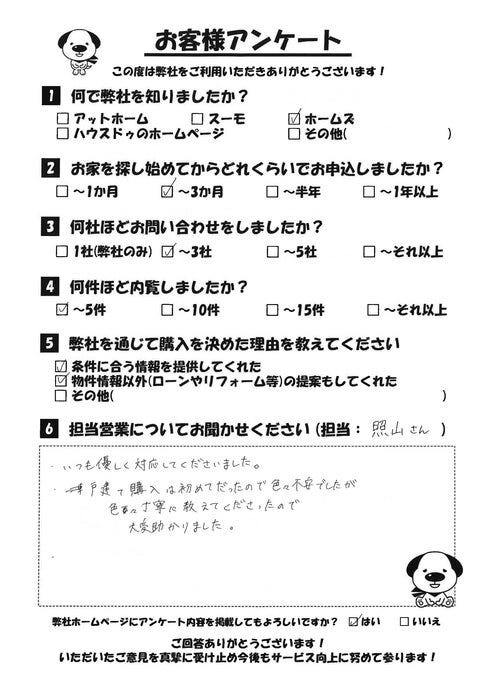 お客様アンケート
この度は弊社をご利用いただきありがとうございます！
1 何で弊社を知りましたか？
□アットホーム □スーモ ☑ホームズ
□ハウスドゥのホームページ □その他( )
2 お家を探し始めてからどれくらいでお申込しましたか？
□～1か月 ☑～3か月 □～半年 □～1年以上
3 何社ほどお問い合わせをしましたか？
□1社(弊社のみ) ☑～3社 □～5社 □～それ以上
4 何件ほど内覧しましたか？
☑～5件 □～10件 □～15件 □～それ以上
5 弊社を通じて購入を決めた理由を教えてください
☑条件に合う情報を提供してくれた
☑物件情報以外(ローンやリフォーム等)の提案もしてくれた
□その他( )
6 担当営業についてお聞かせください(担当：照山さん)
・いつも優しく対応してくださいました。
・戸建て購入は初めてだったので色々不安でしたが
色々丁寧に教えてくださったので
大変助かりました。
・
弊社ホームページにアンケート内容を掲載してもよろしいですか？ ☑はい □いいえ
ご回答ありがとうございます！
いただいたご意見を真摯に受け止め今後もサービス向上に努めて参ります！